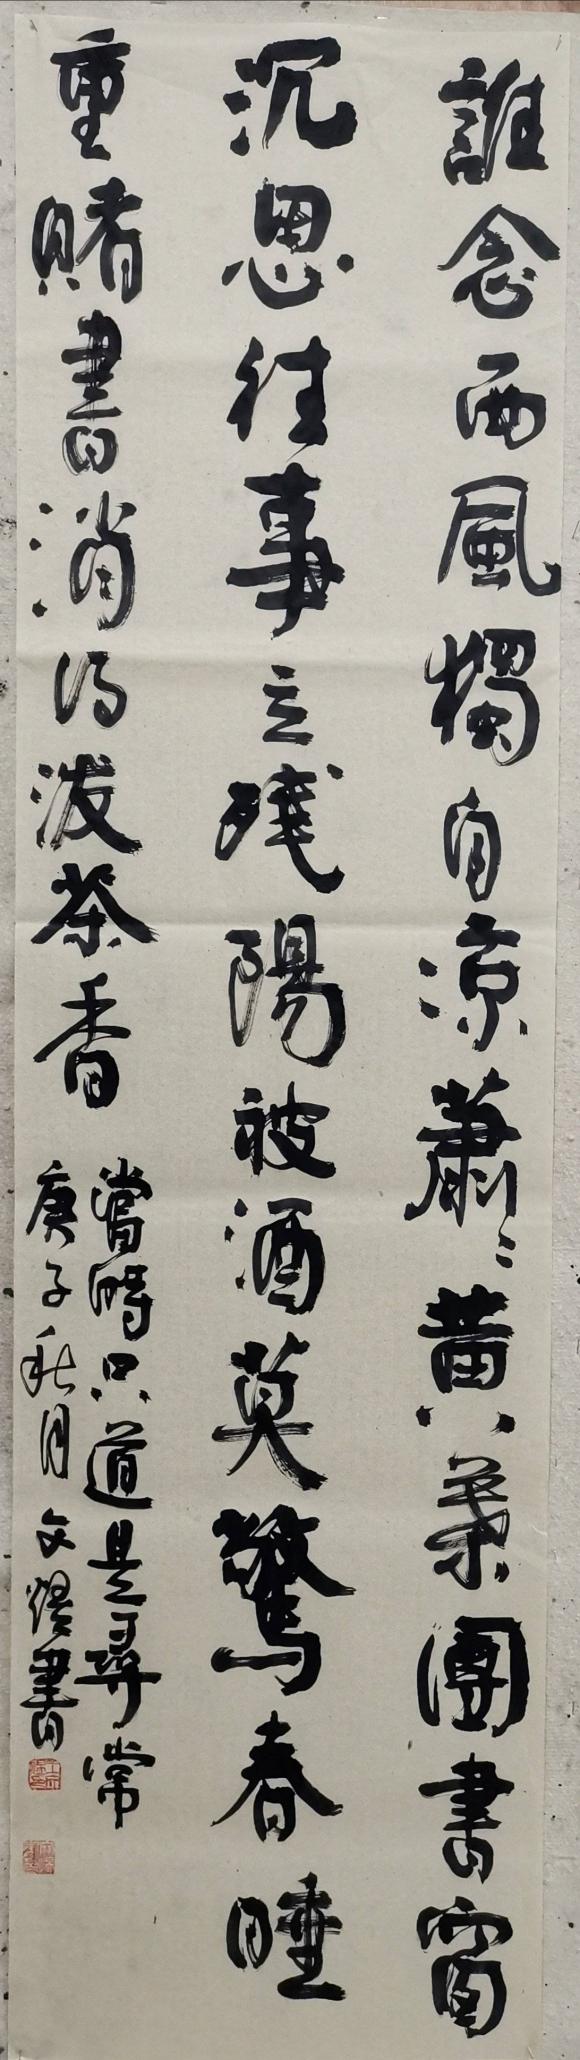 誰念西風獨自涼蕭〻黃葉團書窗
沉思往事立殘陽被酒莫驚春睡
重賭書消得泼茶香
當時只道是尋常
庚子秋月文書